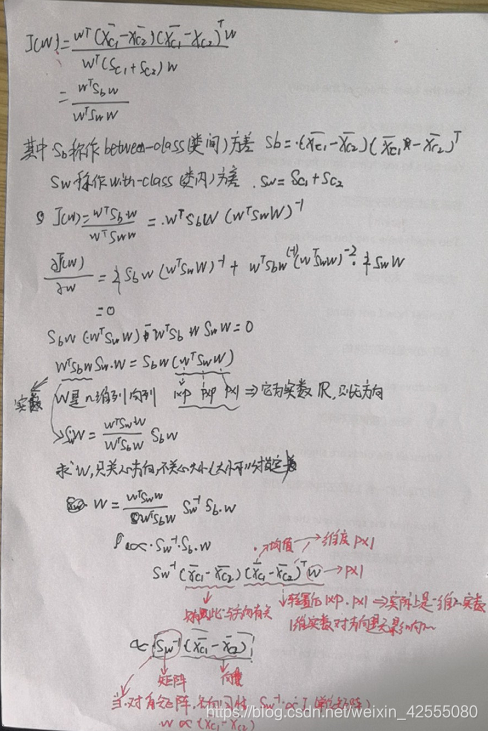 J(w) = wᵀ(X̄c1 - X̄c2)(X̄c1 - X̄c2)ᵀw / wᵀ(Sc1 + Sc2)w
= wᵀSbw / wᵀSww
其中 Sb 称作 between-class (类间) 方差 Sb = (X̄c1 - X̄c2)(X̄c1 - X̄c2)ᵀ
Sw 称作 with-class (类内) 方差. Sw = Sc1 + Sc2
J(w) = wᵀSbw / wᵀSww = wᵀSbw (wᵀSww)⁻¹
∂J(w)/∂w = 2Sbw (wᵀSww)⁻¹ + wᵀSbw(-1)(wᵀSww)⁻²·2Sww
= 0
Sbw (wᵀSww) - wᵀSbw Sww = 0
wᵀSbw Sw·w = Sbw (wᵀSww)
实数 w是n维列向列 1xp pxp px1 ⇒ 它为实数 R, 则无方向
Sww = wᵀSww / wᵀSbw Sbw
求w, 只关心方向, 不关心大小
w = wᵀSww / wᵀSbw Sw⁻¹ Sb·w
∝ Sw⁻¹·Sb·w
均值 → 维度 px1
Sw⁻¹ (X̄c1 - X̄c2)(X̄c1 - X̄c2)ᵀ w → px1
与方向有关 转置后 1xp·px1 ⇒ 实际上是一维实数
1维实数对方向是无影响
∝ Sw⁻¹ (X̄c1 - X̄c2)
矩阵 向量
对角矩阵 Sw⁻¹ ∝ I
w ∝ (X̄c1 - X̄c2)
https://blog.csdn.net/weixin_42555080